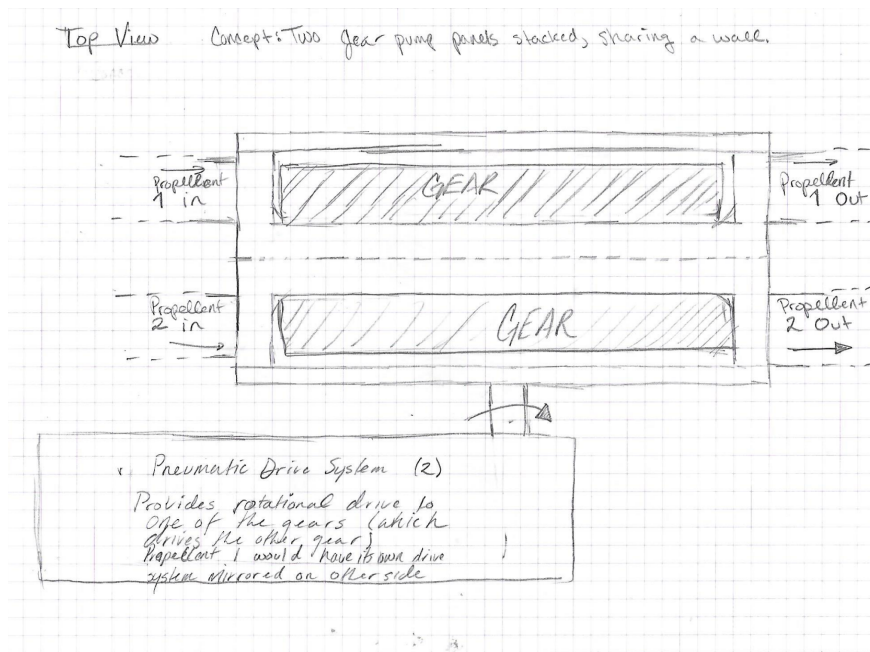 Top View Concept: Two Gear pump panels stacked, sharing a wall.
Propellent
1 in
GEAR
Propellent
1 Out
Propellent
2 in
GEAR
Propellent
2 Out
Pneumatic Drive System (2)
Provides rotational drive to
one of the gears (which
drives the other gear)
Propellent 1 would have its own drive
system mirrored on other side